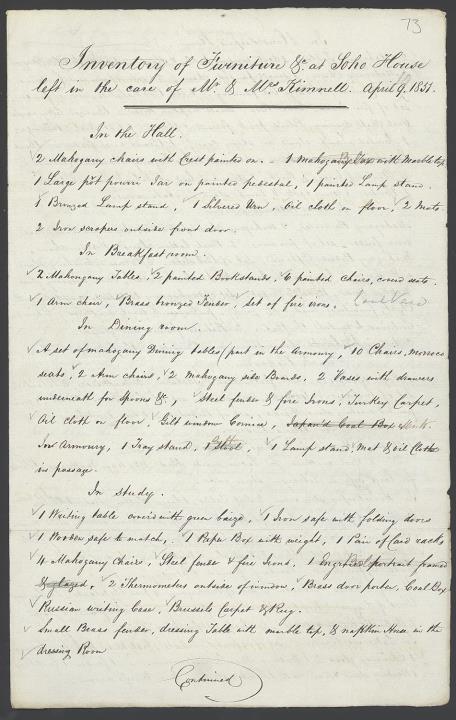 73
Inventory of Furniture &c at Soho House
left in the care of Mr & Mrs Kimnell. April 9. 1851.
In the Hall.
2 Mahogany chairs with Crest painted on. 1 Mahogany with Marble top
1 Large pot pourri Jar on painted pedestal, 1 painted Lamp stand.
8 Bronzed Lamp stand, 1 Silvered Urn, Oil cloth on floor, 2 Mats.
2 Iron scrapers outside front door.
In Breakfast room.
2 Mahogany Tables, 2 painted Bookstands, 6 painted chairs, cover'd seats.
1 Arm chair, Brass bronzed Fender, set of fire irons.
In Dining room.
A set of mahogany Dining tables (part in the Armoury, 10 Chairs, Morroco
seats, 2 Arm chairs, 2 Mahogany side Boards, 2 Vases with drawers
underneath for Spoons &c, Steel fender & fire Irons, Turkey Carpet,
Oil cloth on floor, Gilt window Cornice, Japan'd Coal Box
In Armoury, 1 Tray stand, 1 Stool, 1 Lamp stand, Mat & oil Cloth
in passage.
In study.
1 Writing table cover'd with green baize, 1 Iron safe with folding doors
1 Wooden safe to match, 1 Paper Box with weight, 1 Pair of Card racks
4 Mahogany Chairs, Steel fender & fire Irons, 1 portrait framed
& glazed, 2 Thermometers outside of window, Brass door porter, Coal Box
Russian writing Case, Brussels Carpet & Rug.
Small Brass fender, dressing Table with marble top, & napkin Horse in the
dressing Room
Continued